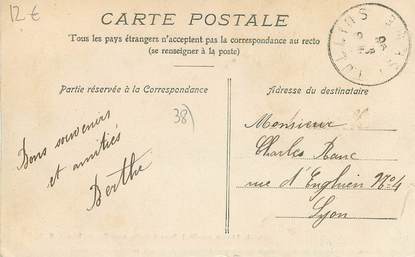 12 €
CARTE POSTALE
Tous les pays étrangers n'acceptent pas la correspondance au recto
(se renseigner à la poste)
TULLINS
ISÈRE
Partie réservée à la Correspondance
38)
Bons souvenirs
et amitiés
Berthe
Adresse du destinataire
Monsieur
Charles Ranc
rue d'Enghien No 4
Lyon